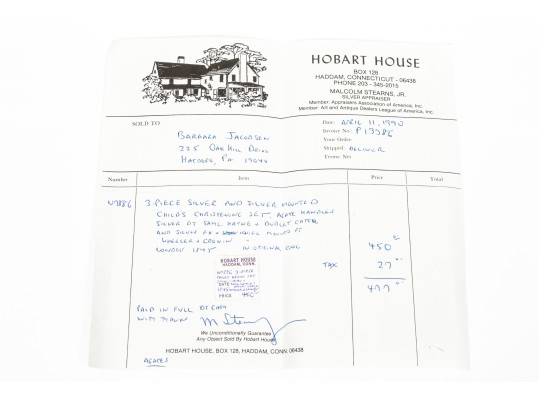 HOBART HOUSE
BOX 128
HADDAM, CONNECTICUT - 06438
PHONE 203 - 345-2015
MALCOLM STEARNS, JR.
SILVER APPRAISER
Member: Appraisers Association of America, Inc.
Member: Art and Antique Dealers League of America, Inc.
SOLD TO
BARBARA JACOBSEN
225 OAK HILL DRIVE
Date: APRIL 11, 1990
Invoice No.: P13386
Your Order:
Shipped: DELIVER
Terms: Net
Number Item Price Total
3 PIECE SILVER AND SILVER MOUNTED
CHILDS CHRISTENING SET, AGATE HANDLES
SILVER BY SAML
AND SILVER
LONDON 1845 IN ORIGINAL
450
TAX 27
477
HOBART HOUSE
HADDAM, CONN.
3 PIECE
DATE
PRICE 450
PAID IN FULL BY
WITH THANKS M Stearns
We Unconditionally Guarantee
Any Object Sold By Hobart House
HOBART HOUSE, BOX 128, HADDAM, CONN. 06438